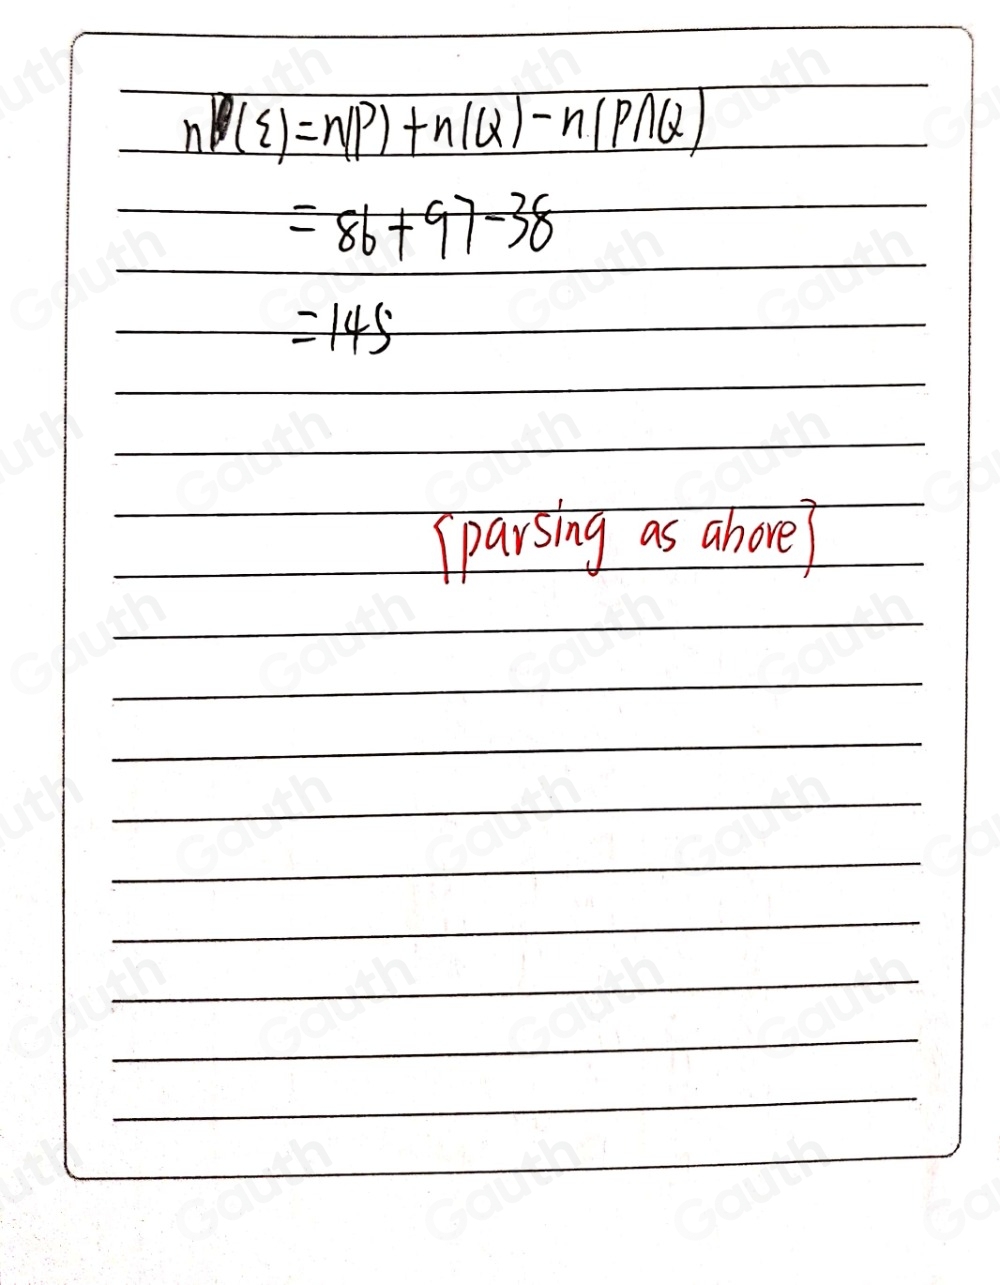 n(ξ)=n(P)+n(Q)-n(P∩Q)
=86+97-38
=145
{parsing as above}